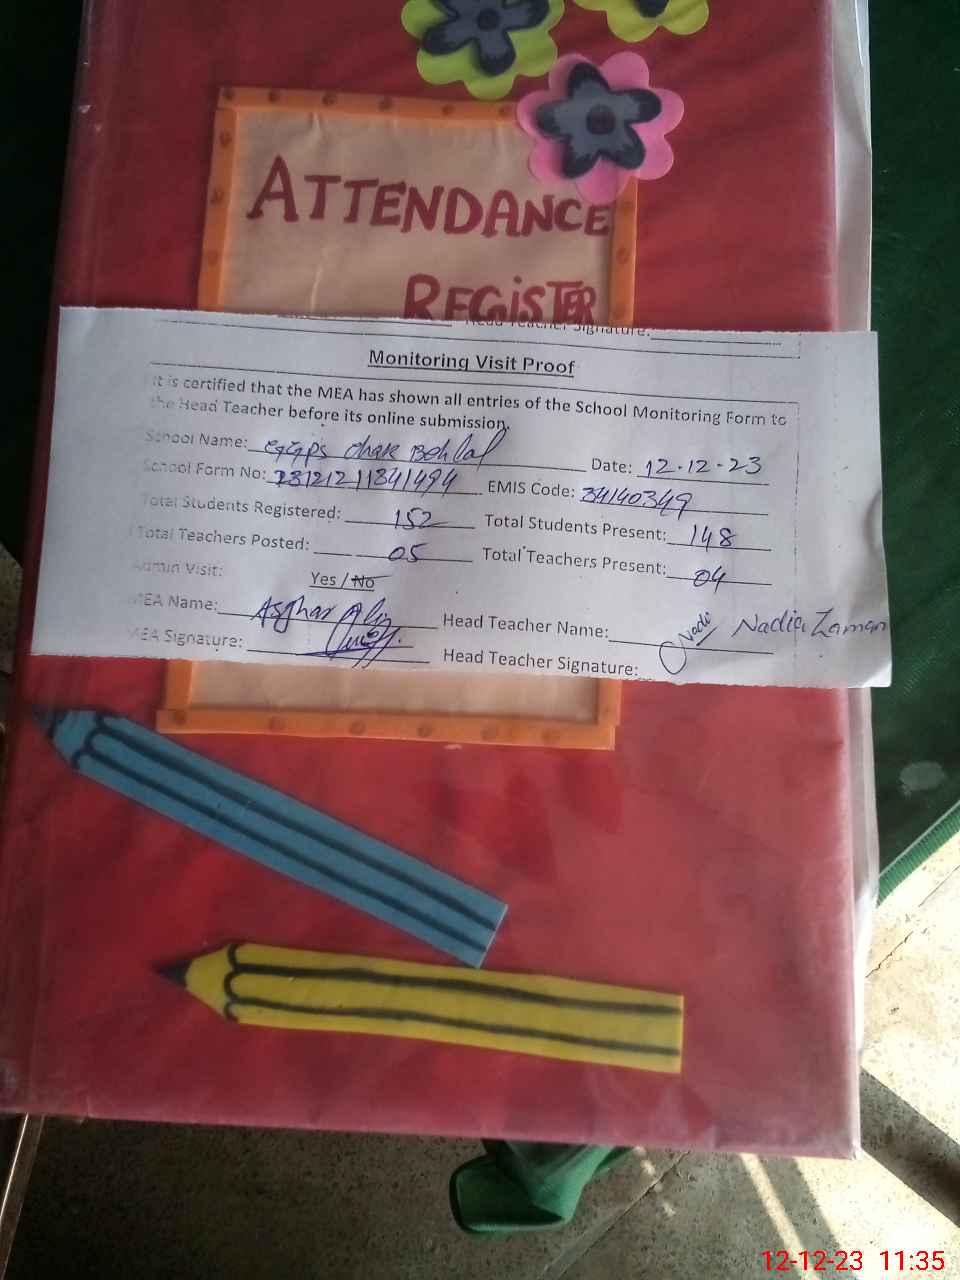 ATTENDANCE
REGISTER
Head Teacher Signature:
Monitoring Visit Proof
It is certified that the MEA has shown all entries of the School Monitoring Form to
the Head Teacher before its online submission.
School Name: GGPS Chak Behlal Date: 12-12-23
School Form No: 23121211341494 EMIS Code: 34140349
Total Students Registered: 152 Total Students Present: 148
Total Teachers Posted: 05 Total Teachers Present: 04
Admin Visit: Yes / No
MEA Name: Asghar Ali Head Teacher Name: Nadia Zaman
MEA Signature: Head Teacher Signature: Nadi
12-12-23 11:35